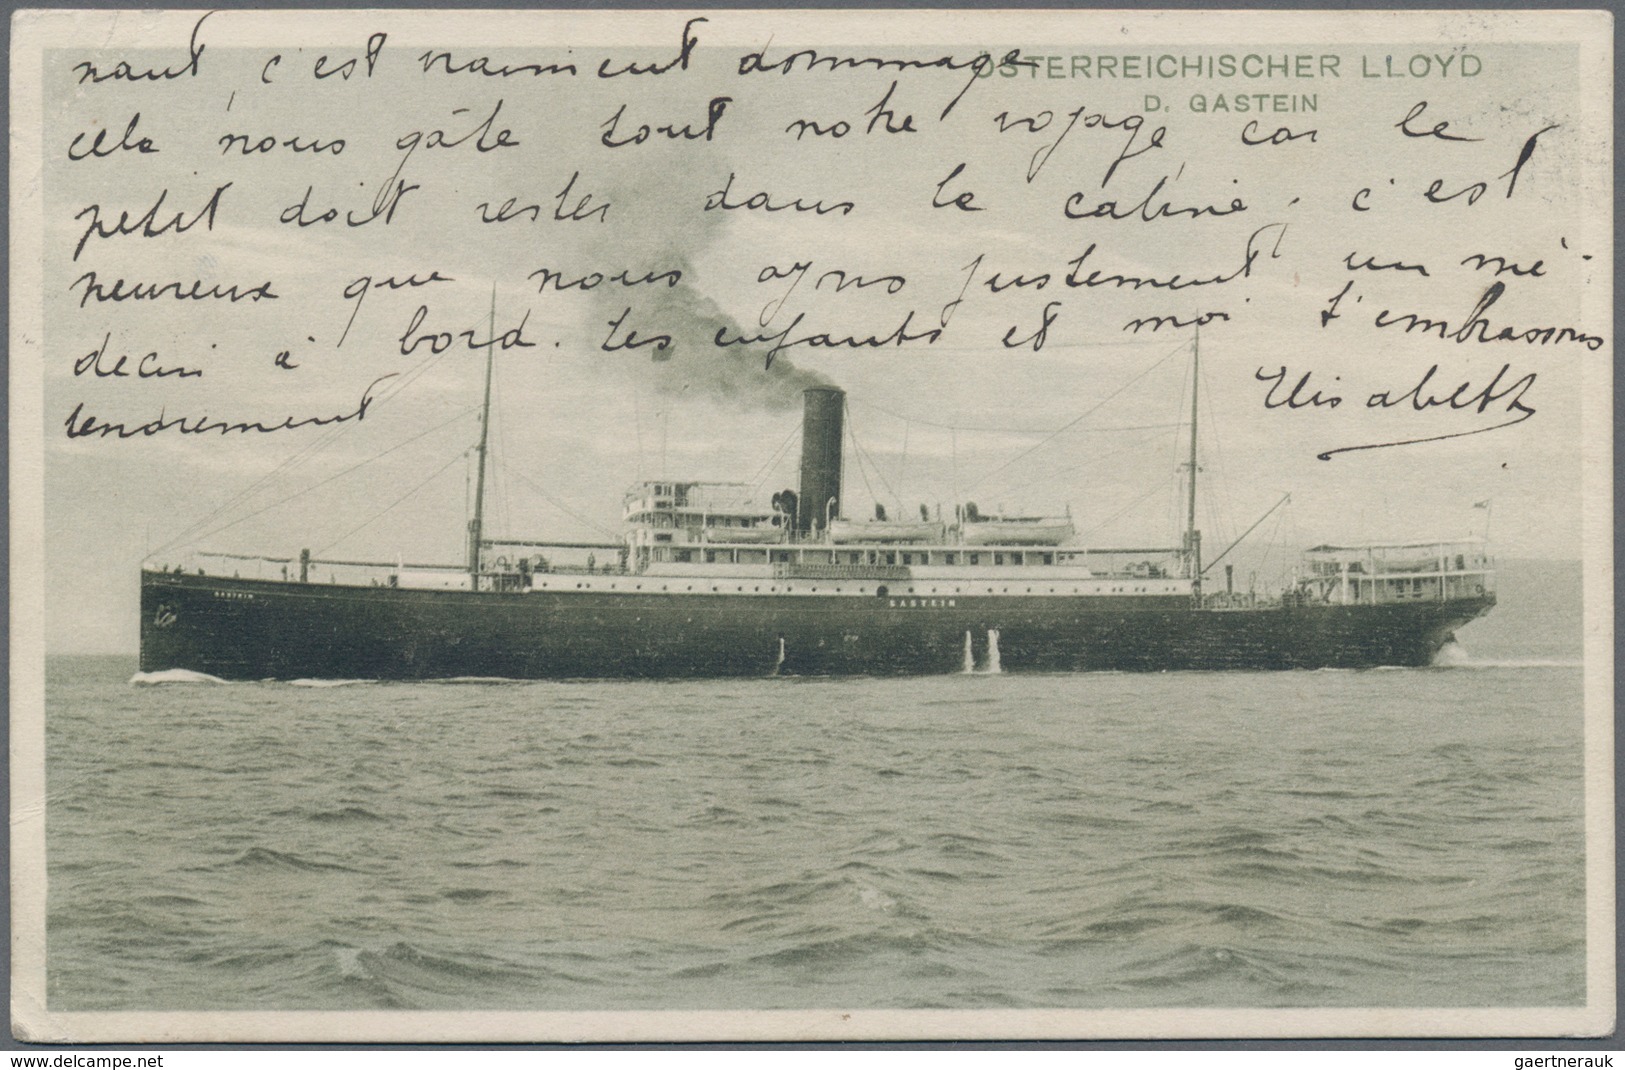 nant, c'est vraiment dommage
ÖSTERREICHISCHER LLOYD
D. GASTEIN
cela nous gâte tout notre voyage, car le
petit doit rester dans la cabine; c'est
heureux que nous ayons justement un mé-
decin à bord. Les enfants et moi t'embrassons
tendrement Elisabeth
GASTEIN
GASTEIN
www.delcampe.net
gaertnerauk